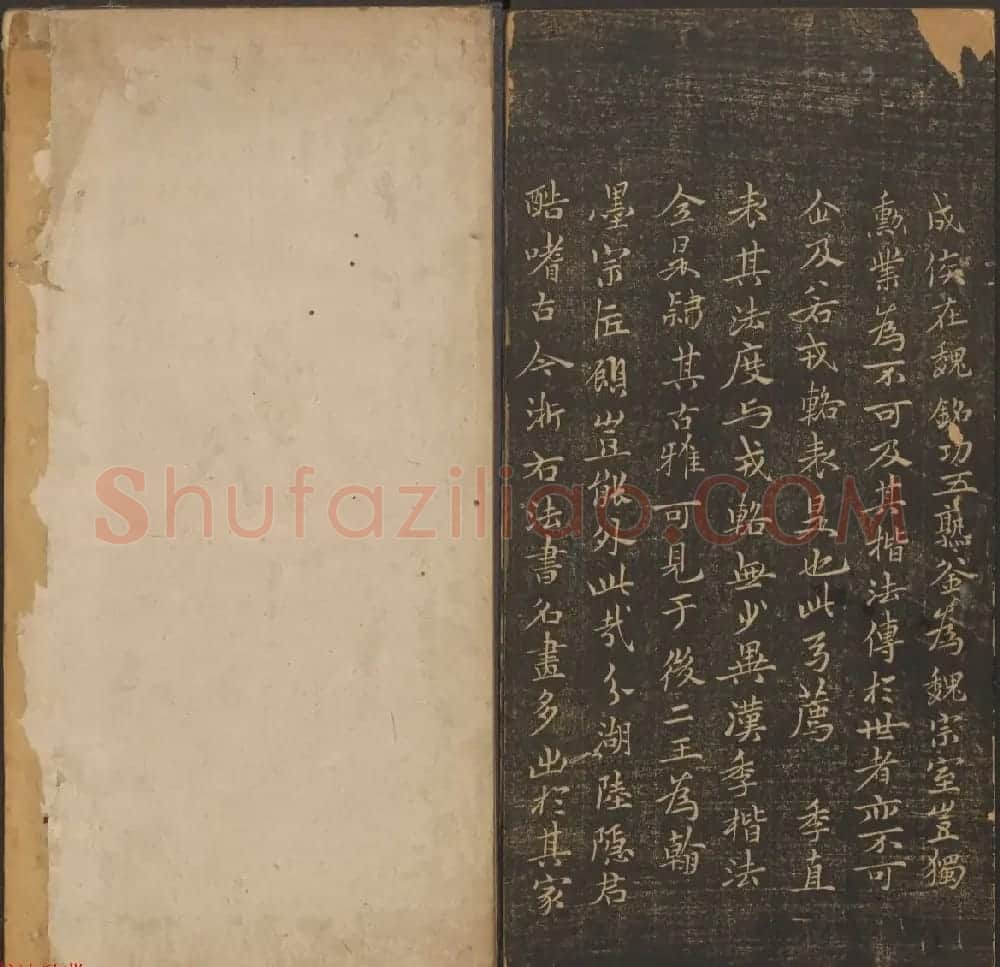 成侯在魏銘功五熟釜為魏宗室豈獨
勳業為不可及其楷法傳於世者亦不可
企及若戎輅表是也此乃薦季直
表其法度与戎輅無少異漢季楷法
今是隸其古雅可見于後二王為翰
墨宗匠顧豈能外此哉分湖陸隱君
酷嗜古今浙右法書名畫多出於其家
Shufaziliao.COM